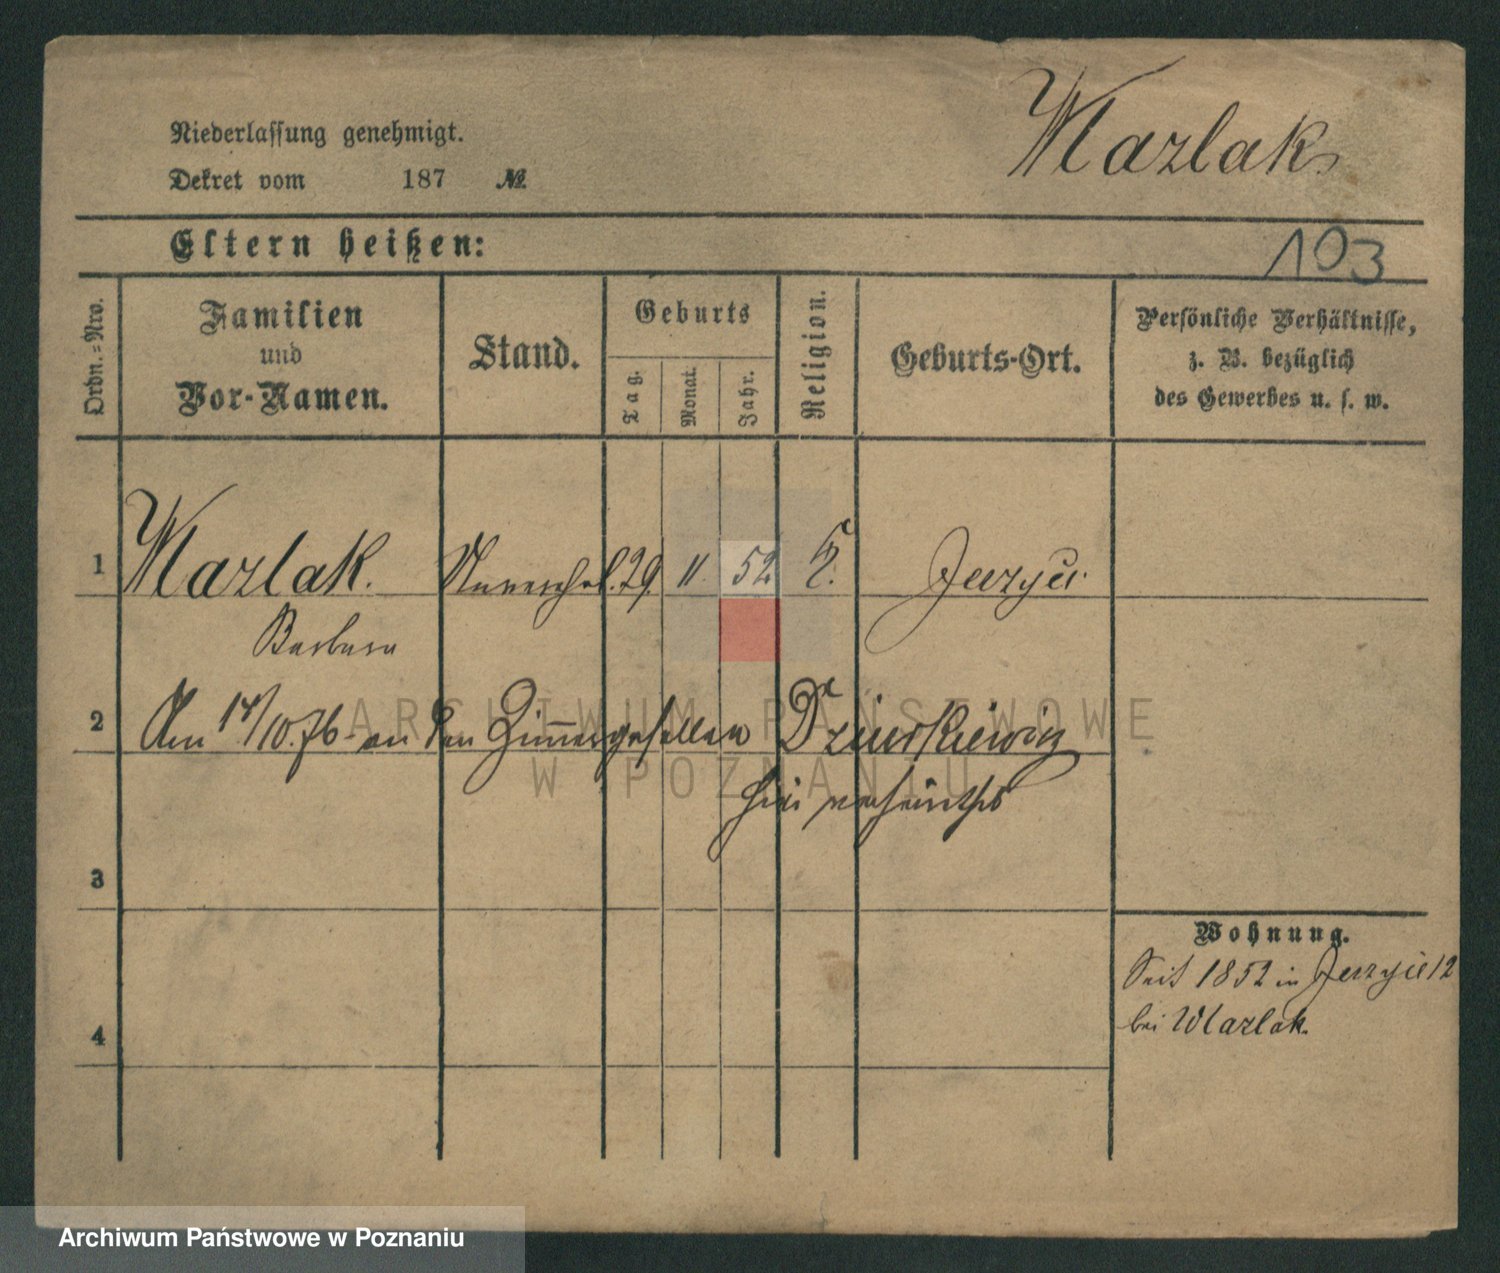 Wazlak
Niederlassung genehmigt.
Dekret vom 187 №
Eltern heißen:
193
Ordn.=Nro.
Familien
und
Vor-Namen.
Stand.
Geburts
Tag.
Monat.
Jahr.
Religion.
Geburts-Ort.
Persönliche Verhältnisse,
z. B. bezüglich
des Gewerbes u. s. w.
1 Wazlak. Unverehel. 29. 11. 52 Jerzyce
Barbara
2 Am 14/10.76 an den Zimmergesellen Dziurkiewicz
hier verheirathet
3
4
Wohnung.
Seit 1852 in Jerzyce 12
bei Wazlak.
ARCHIWUM PAŃSTWOWE
W POZNANIU
Archiwum Państwowe w Poznaniu